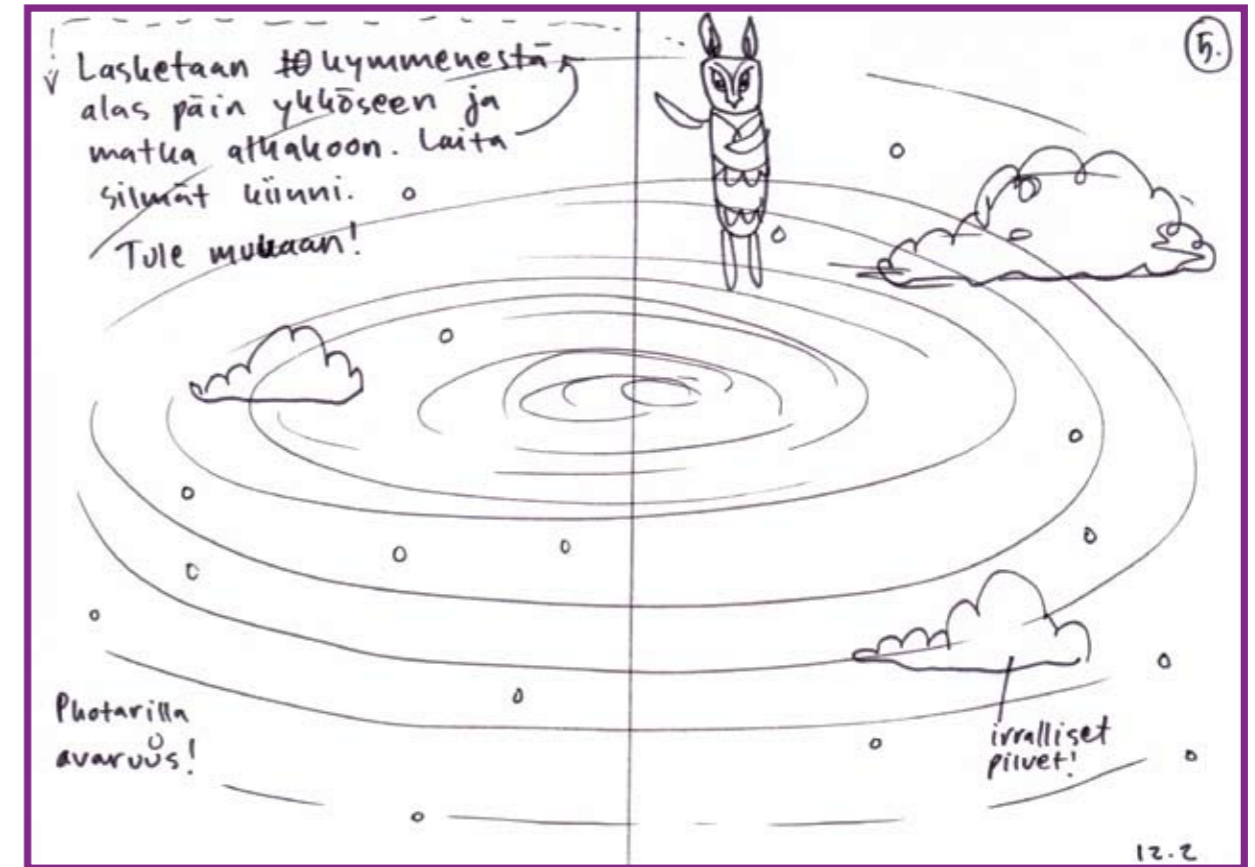 Lasketaan kymmenestä
alas päin ykköseen ja
matka alkakoon. Laita
silmät kiinni.
Tule mukaan!
5.
Photarilla
avaruus!
irralliset
pilvet!
12.2